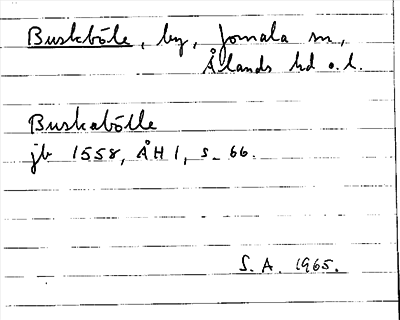 Buskböle, by, Jomala sn,
Ålands hd o. l.
Buskabölle
jb 1558, ÅH 1, s. 66.
S. A. 1965.